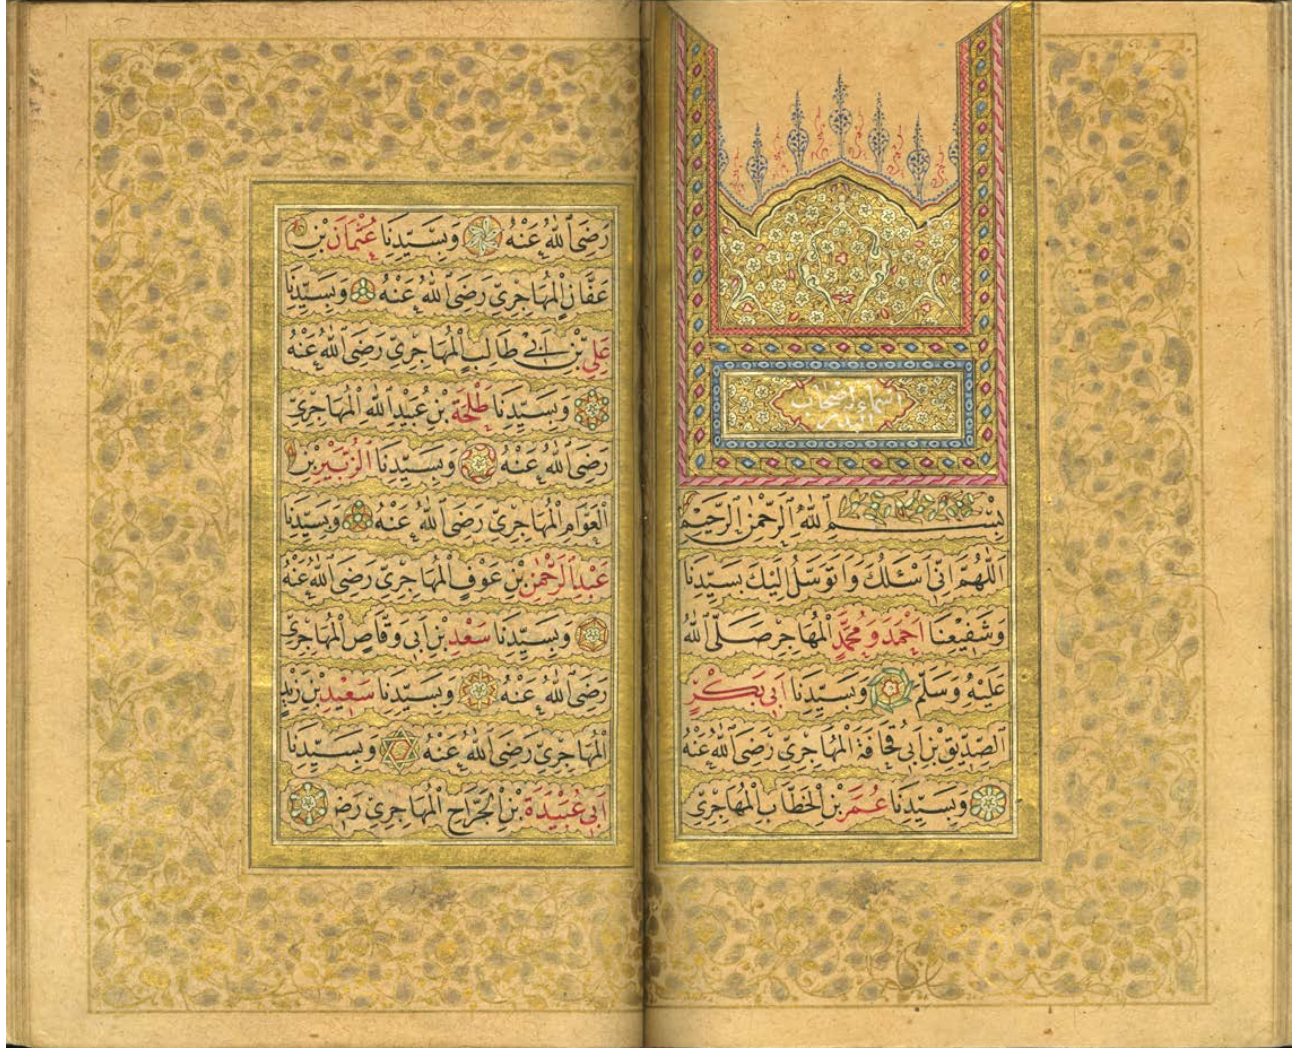 اسماء اصحاب
البدر
بِسْــــمِ ٱللّٰهِ ٱلرَّحْمٰنِ ٱلرَّحِيمِ
اَللّٰهُمَّ اِنّٖى اَسْئَلُكَ وَاَتَوَسَّلُ اِلَيْكَ بِسَيِّدِنَا
وَشَفٖيعِنَا اَحْمَدَ وَمُحَمَّدٍ الْمُهَاجِرِ صَلَّى ٱللّٰهُ
عَلَيْهِ وَسَلَّمَ وَبِسَيِّدِنَا اَبٖى بَكْرٍ
اَلصِّدّٖيقِ بْنِ اَبٖى قُحَافَةَ الْمُهَاجِرِىِّ رَضِىَ ٱللّٰهُ عَنْهُ
وَبِسَيِّدِنَا عُمَرَ بْنِ الْخَطَّابِ الْمُهَاجِرِىِّ
رَضِىَ ٱللّٰهُ عَنْهُ وَبِسَيِّدِنَا عُثْمَانَ بْنِ
عَفَّانِ الْمُهَاجِرِىِّ رَضِىَ ٱللّٰهُ عَنْهُ وَبِسَيِّدِنَا
عَلِىِّ بْنِ اَبٖى طَالِبِ الْمُهَاجِرِىِّ رَضِىَ ٱللّٰهُ عَنْهُ
وَبِسَيِّدِنَا طَلْحَةَ بْنِ عُبَيْدِ ٱللّٰهِ الْمُهَاجِرِىِّ
رَضِىَ ٱللّٰهُ عَنْهُ وَبِسَيِّدِنَا الزُّبَيْرِ بْنِ
الْعَوَّامِ الْمُهَاجِرِىِّ رَضِىَ ٱللّٰهُ عَنْهُ وَبِسَيِّدِنَا
عَبْدِ الرَّحْمٰنِ بْنِ عَوْفِ الْمُهَاجِرِىِّ رَضِىَ ٱللّٰهُ عَنْهُ
وَبِسَيِّدِنَا سَعْدِ بْنِ اَبٖى وَقَّاصِ الْمُهَاجِرِىِّ
رَضِىَ ٱللّٰهُ عَنْهُ وَبِسَيِّدِنَا سَعٖيدِ بْنِ زَيْدِ
الْمُهَاجِرِىِّ رَضِىَ ٱللّٰهُ عَنْهُ وَبِسَيِّدِنَا
اَبٖى عُبَيْدَةَ بْنِ الْجَرَّاحِ الْمُهَاجِرِىِّ رَضِ